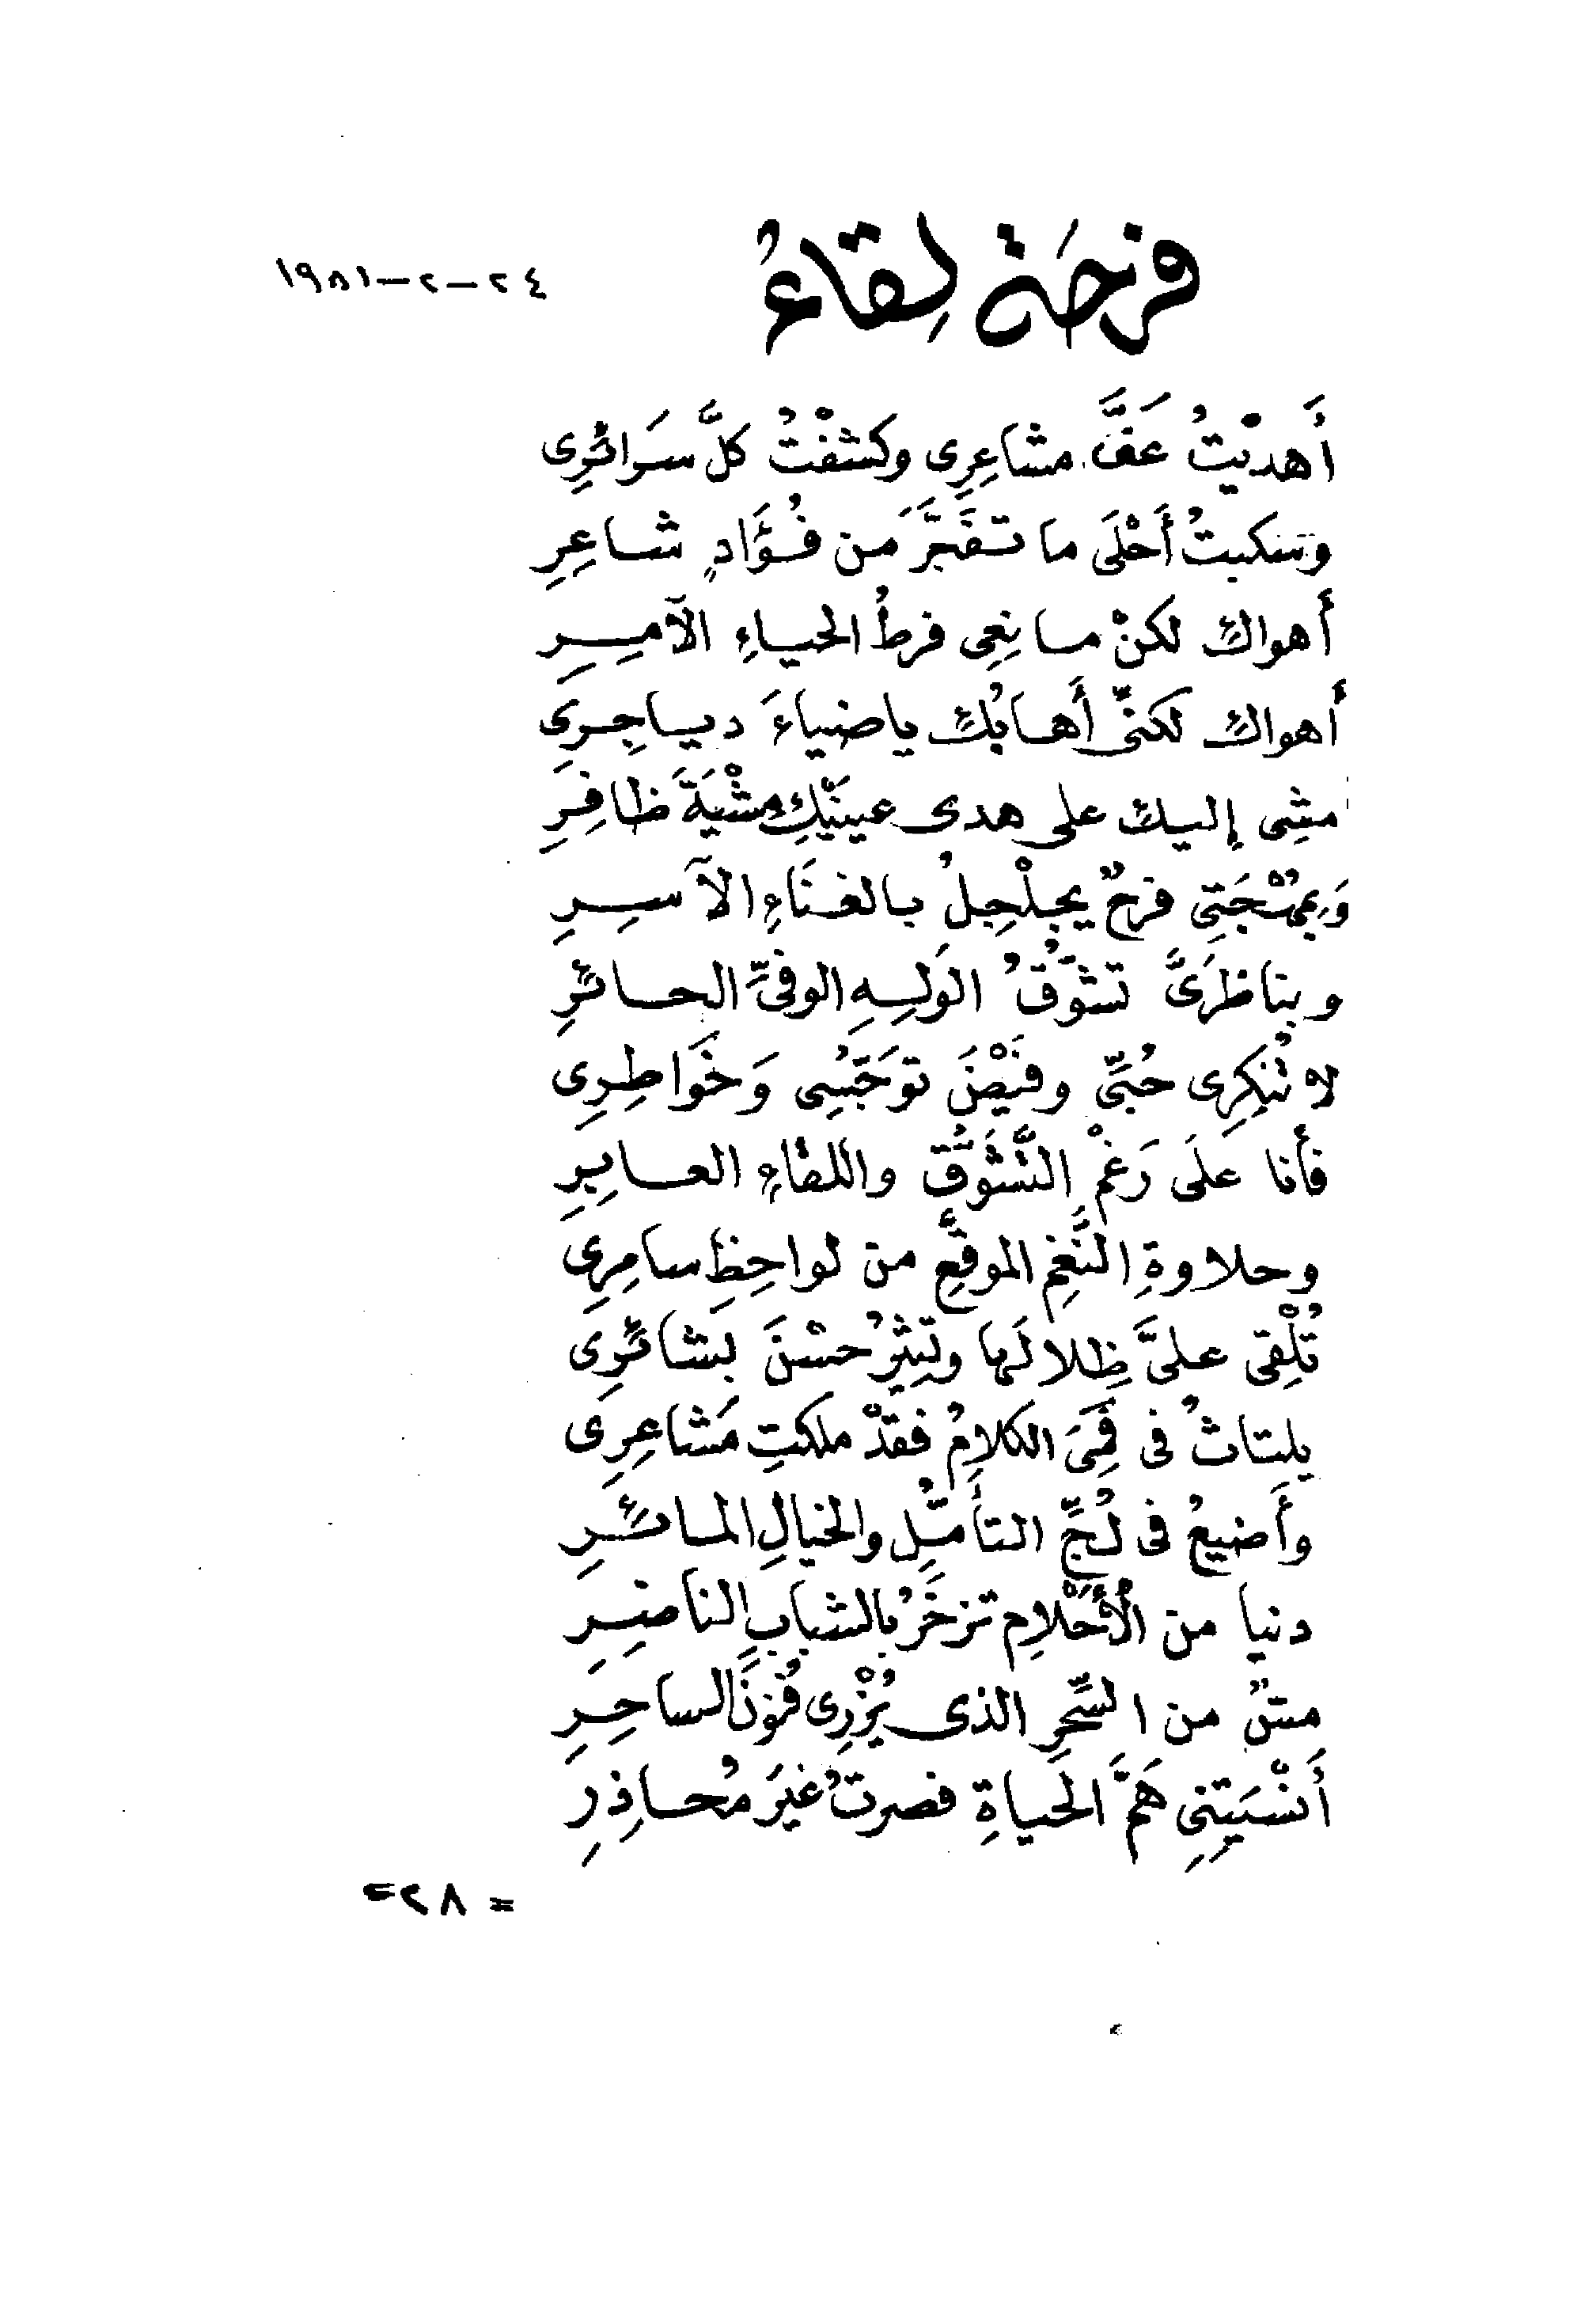 فرحَة لِقاءُ
٢٤-٢-١٩٨١
أَهديْتُ عَفَّ مشاعِرِى وكشفْتُ كلَّ سَرائرِى
وسكبتُ أَحْلَى ما تفَجَّرَ من فُؤَادٍ شاعِرِ
أهواكِ لكنْ مانِعِى فرطُ الحياءِ الآمِرِ
أهواكِ لكنِّى أَهابُكِ ياضياءَ دياجِرِى
مشِى إليكِ على هدى عينيْكِ مِشْيَةَ ظافِرِ
وَبِمُهْجَتِى فرحٌ يجلْجِلُ بالغنَاءِ الآسِرِ
وبناظرَىَّ تشوّقُ الوَلِهِ الوفىِّ الحائرِ
لا تُنكِرِى حُبِّى وفيْضَ توَجّسِى وَخَوَاطِرِى
فأنا علَى رَغْمِ التَّشَوُّقِ واللقاءِ العابِرِ
وحلاوةِ النَّغمِ الموقَّعِ من لواحِظِ سامِرِى
تُلْقِى علىَّ ظِلالَها وتثِيرُ حسْنَ بَشائرِى
يلتاثُ فى فمِىَ الكلامُ فقدْ ملكتِ مَشاعِرِى
وأَضيعُ فى لُجِّ التأمّلِ والخيالِ المائرِ
دنيا من الأحْلامِ تزخَرُ بالشبابِ الناضِرِ
مسٌّ من السِّحرِ الذى يُزْرِى فُنونَ الساحِرِ
أَنْسَيتِنِى هَمَّ الحَياةِ فصرتُ غيرَ مُحاذِرِ
= ٢٨ =